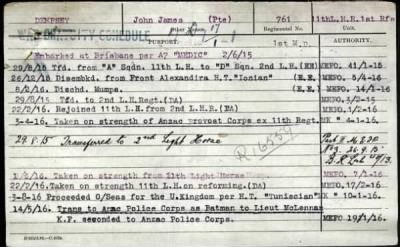 DEMPSEY John James (Pte) 761 11thL.H.R.1st Rfs
Regimental No. Unit.
1st M.D. AUTHORITY.
Embarked at Brisbane per A7 "MEDIC" 2/6/15
29/8/15 Tfd. from "A" Sqdn. 11th L.H. to "D" Sqn. 2nd L.H. MEFO. 41/1-15
26/12/15 Disembkd. from Front Alexandria H.T. "Ionian" (E.E.) MEFO. 5/4-16
8/2/16. Dischd. Mumps. (E.E.) MEFO. 14/2-16
29/8/15 Tfd. to 2nd L.H.Regt.(DA) MEFO.3/2-15
22/2/16. Rejoined 11th L.H. from 2nd L.H.R.(DA) MEFO.17/2-16
3-4-16. Taken on strength of Anzac Provost Corps ex 11th Regt. MK " 4/1-16.
29.8.15 Transferred to 2nd Light Horse
R16554
Taken on strength from 11th Light Horse MEFO. 7/1-16
22/2/16. Taken on strength 11th L.H. on reforming.(DA) MEFO.17/2-16
3-8-16 Proceeded O/Seas for the U.Kingdom per H.T. "Tunisian" MK " 10-1-16.
14/5/16. Trans to Anac Police Corps as Batman to Lieut McLennan
K.F. seconded to Anzac Police Corps. MEFO 19/1/16